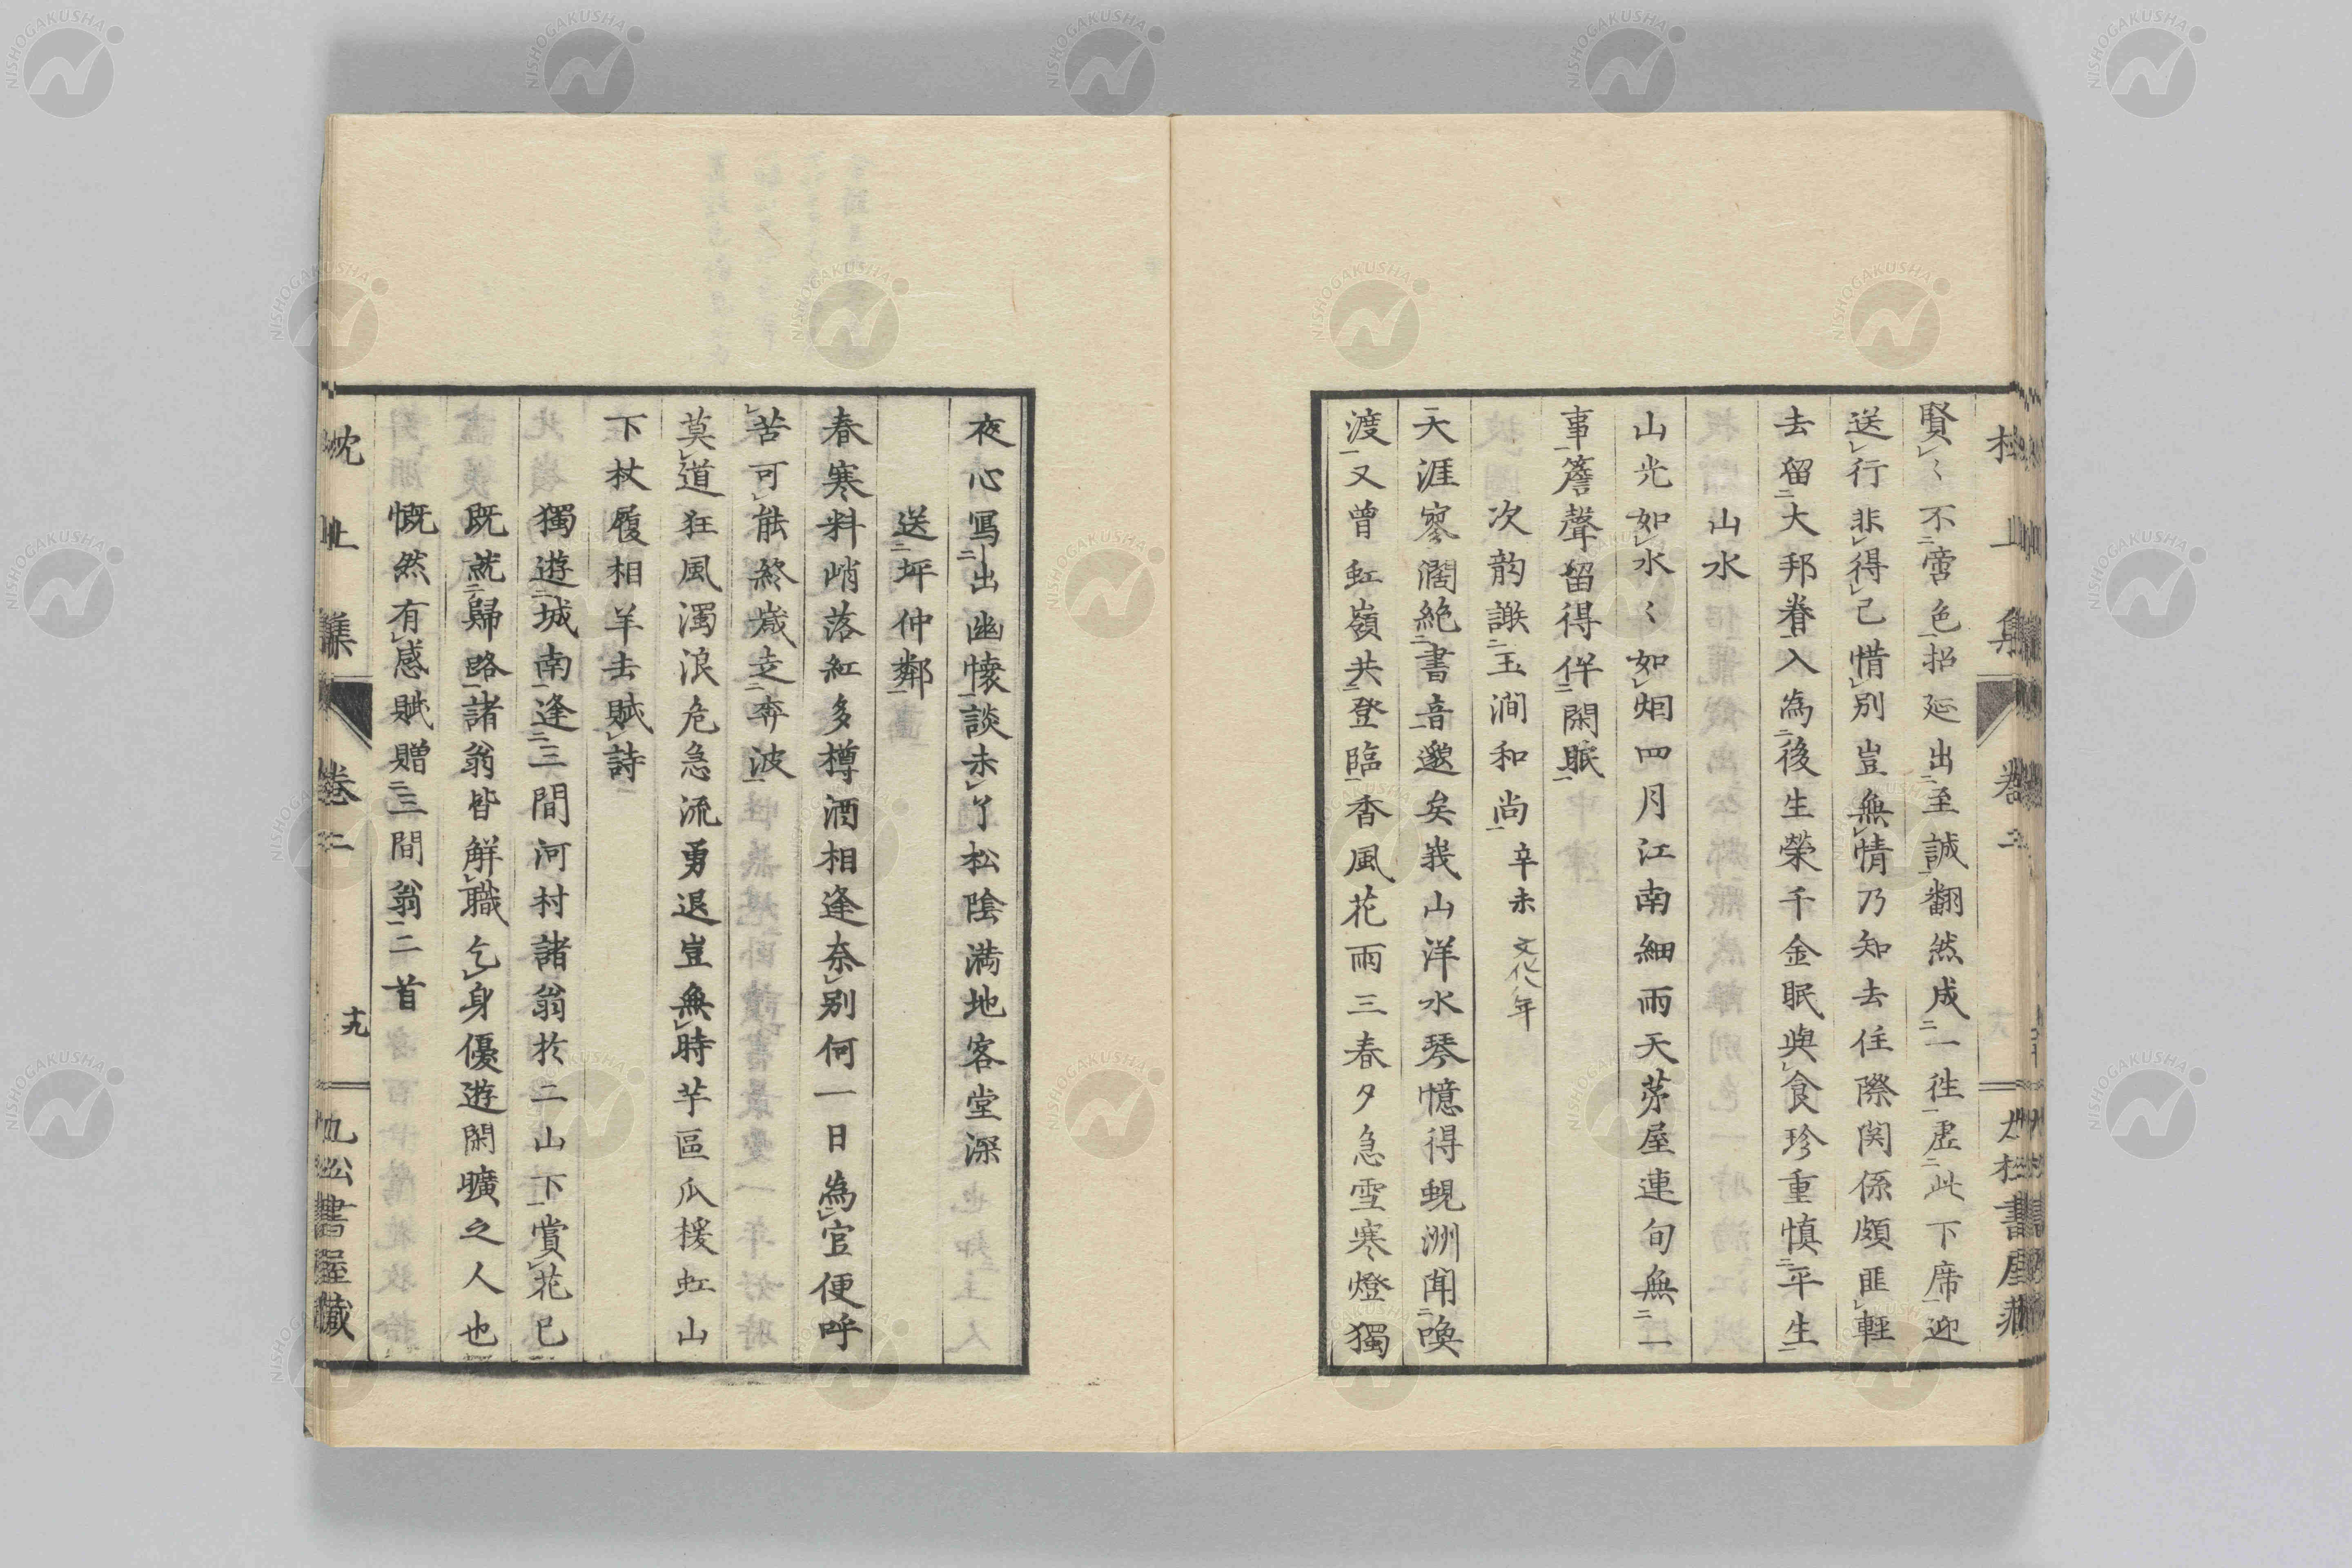 賢〻不啻色招延出至誠翻然成一徃虚此下席迎
送行非得已惜別豈無情乃知去住際関係頗匪軽
去留大邦眷入為後生榮千金眠與食珍重慎平生
山水
山光如水〻如烟四月江南細雨天茅屋連旬無一
事簷聲留得伴閑眠
次韵謝玉澗和尚 辛未 文化八年
天涯寥濶絶書音邈矣峩山洋水琴憶得蜆洲聞喚
渡又曽虹嶺共登臨香風花雨三春夕急雪寒燈獨
夜心寫出幽懐談未了松陰満地客堂深
送坪仲鄰
春寒料峭落紅多樽酒相逢奈別何一日為官便呼
苦可能終歳走奔波
莫道狂風濁浪危急流勇退豈無時芋區瓜援虹山
下杖履相羊去賦詩
獨遊城南逢三間河村諸翁於二山下賞花已
既就歸路諸翁皆解職乞身優遊閑曠之人也
慨然有感賦贈三間翁二首
枕山集 巻二 十九 九松書屋蔵